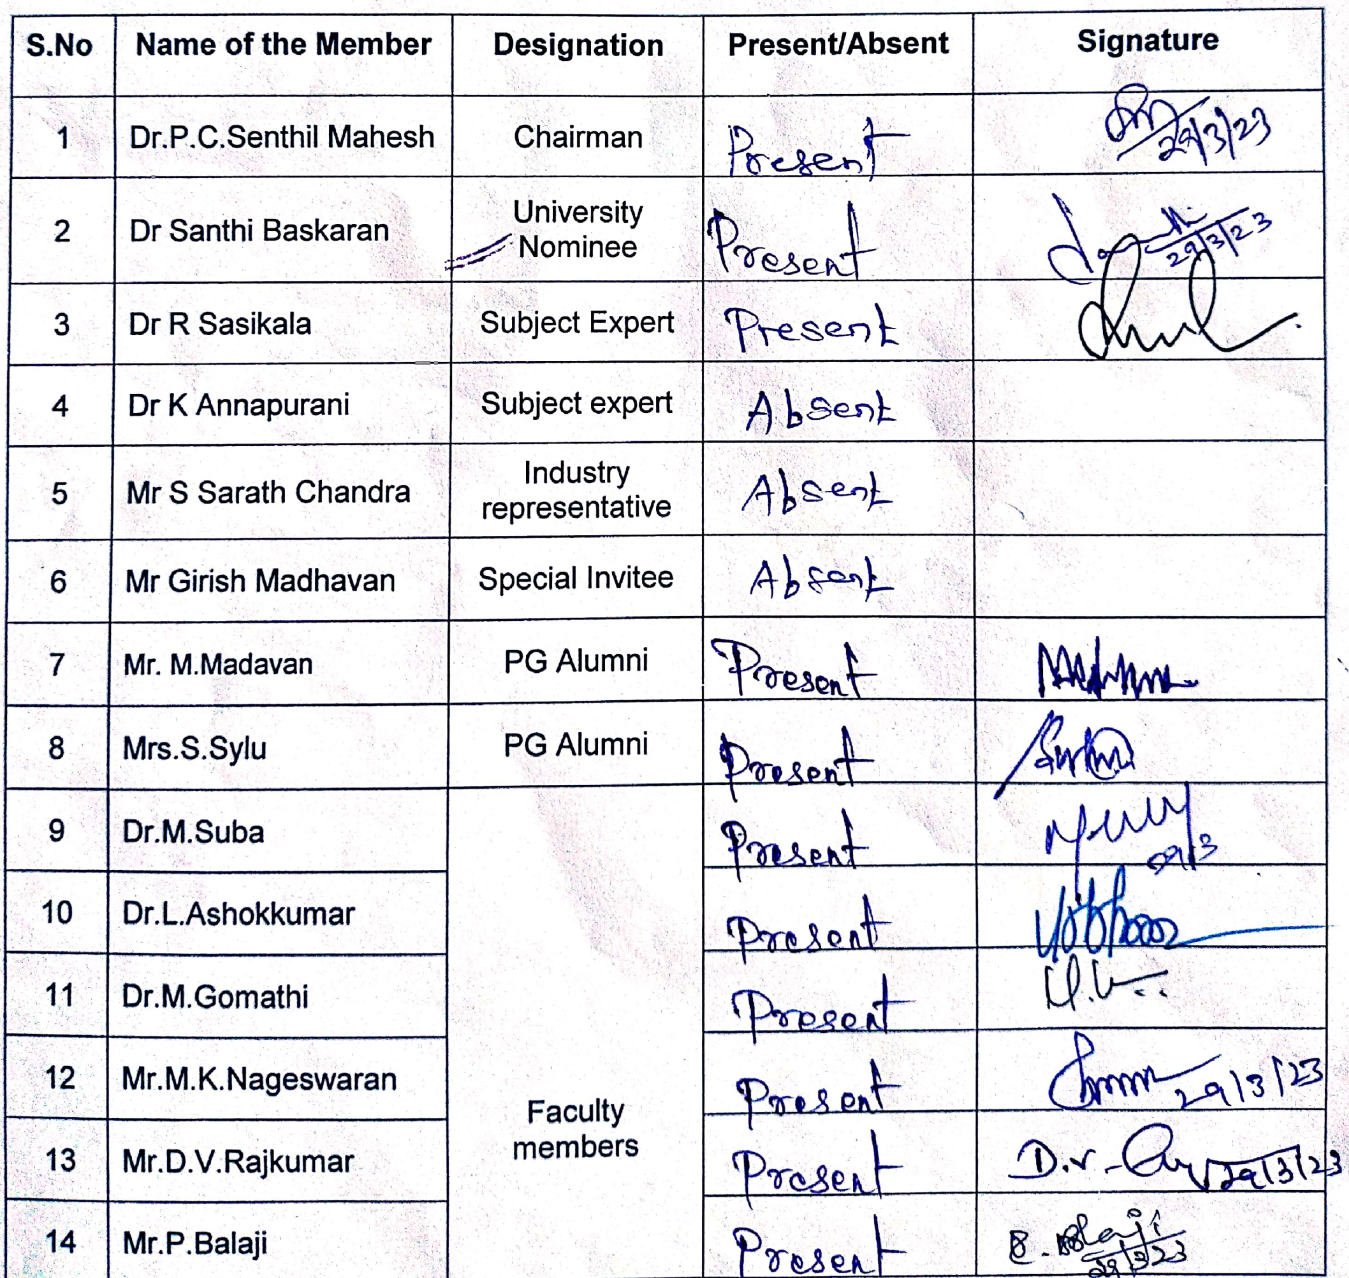 S.No Name of the Member Designation Present/Absent Signature
1 Dr.P.C.Senthil Mahesh Chairman Present 29/3/23
2 Dr Santhi Baskaran University Nominee Present 29/3/23
3 Dr R Sasikala Subject Expert Present
4 Dr K Annapurani Subject expert Absent
5 Mr S Sarath Chandra Industry representative Absent
6 Mr Girish Madhavan Special Invitee Absent
7 Mr. M.Madavan PG Alumni Present
8 Mrs.S.Sylu PG Alumni Present
9 Dr.M.Suba Present 29/3
10 Dr.L.Ashokkumar Present
11 Dr.M.Gomathi Present
12 Mr.M.K.Nageswaran Faculty members Present 29/3/23
13 Mr.D.V.Rajkumar Present D.V. 29/3/23
14 Mr.P.Balaji Present 29/3/23